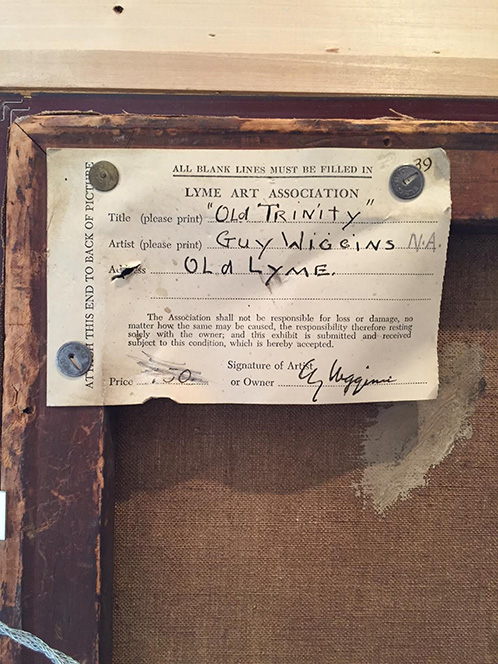 39
ALL BLANK LINES MUST BE FILLED IN
LYME ART ASSOCIATION
Title (please print) "Old Trinity"
Artist (please print) Guy Wiggins N.A.
Address Old Lyme.
The Association shall not be responsible for loss or damage, no
matter how the same may be caused, the responsibility therefore resting
solely with the owner; and this exhibit is submitted and received
subject to this condition, which is hereby accepted.
Signature of Artist
Price or Owner Guy Wiggins
THIS END TO BACK OF PICTURE